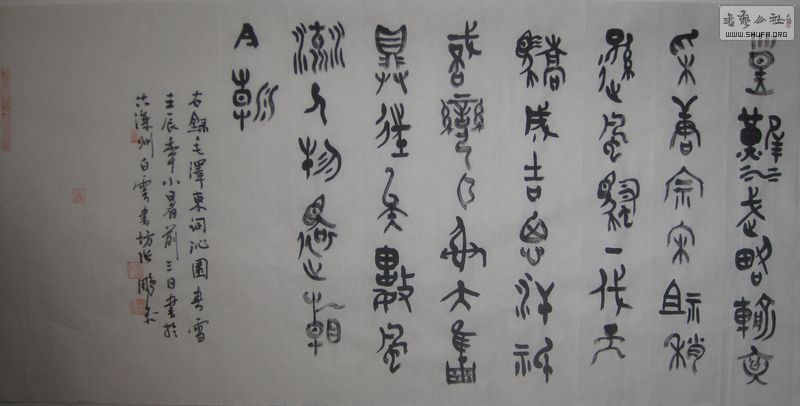 書藝公社
WWW.SHUFA.ORG
皇漢武略輸文
采唐宗宋祖稍
遜風騷一代天
驕成吉思汗祇
識彎弓射大雕
俱往矣數風
流人物還看
今朝
右錄毛澤東詞沁園春雪
壬辰年小暑前三日書於
州白雲書坊